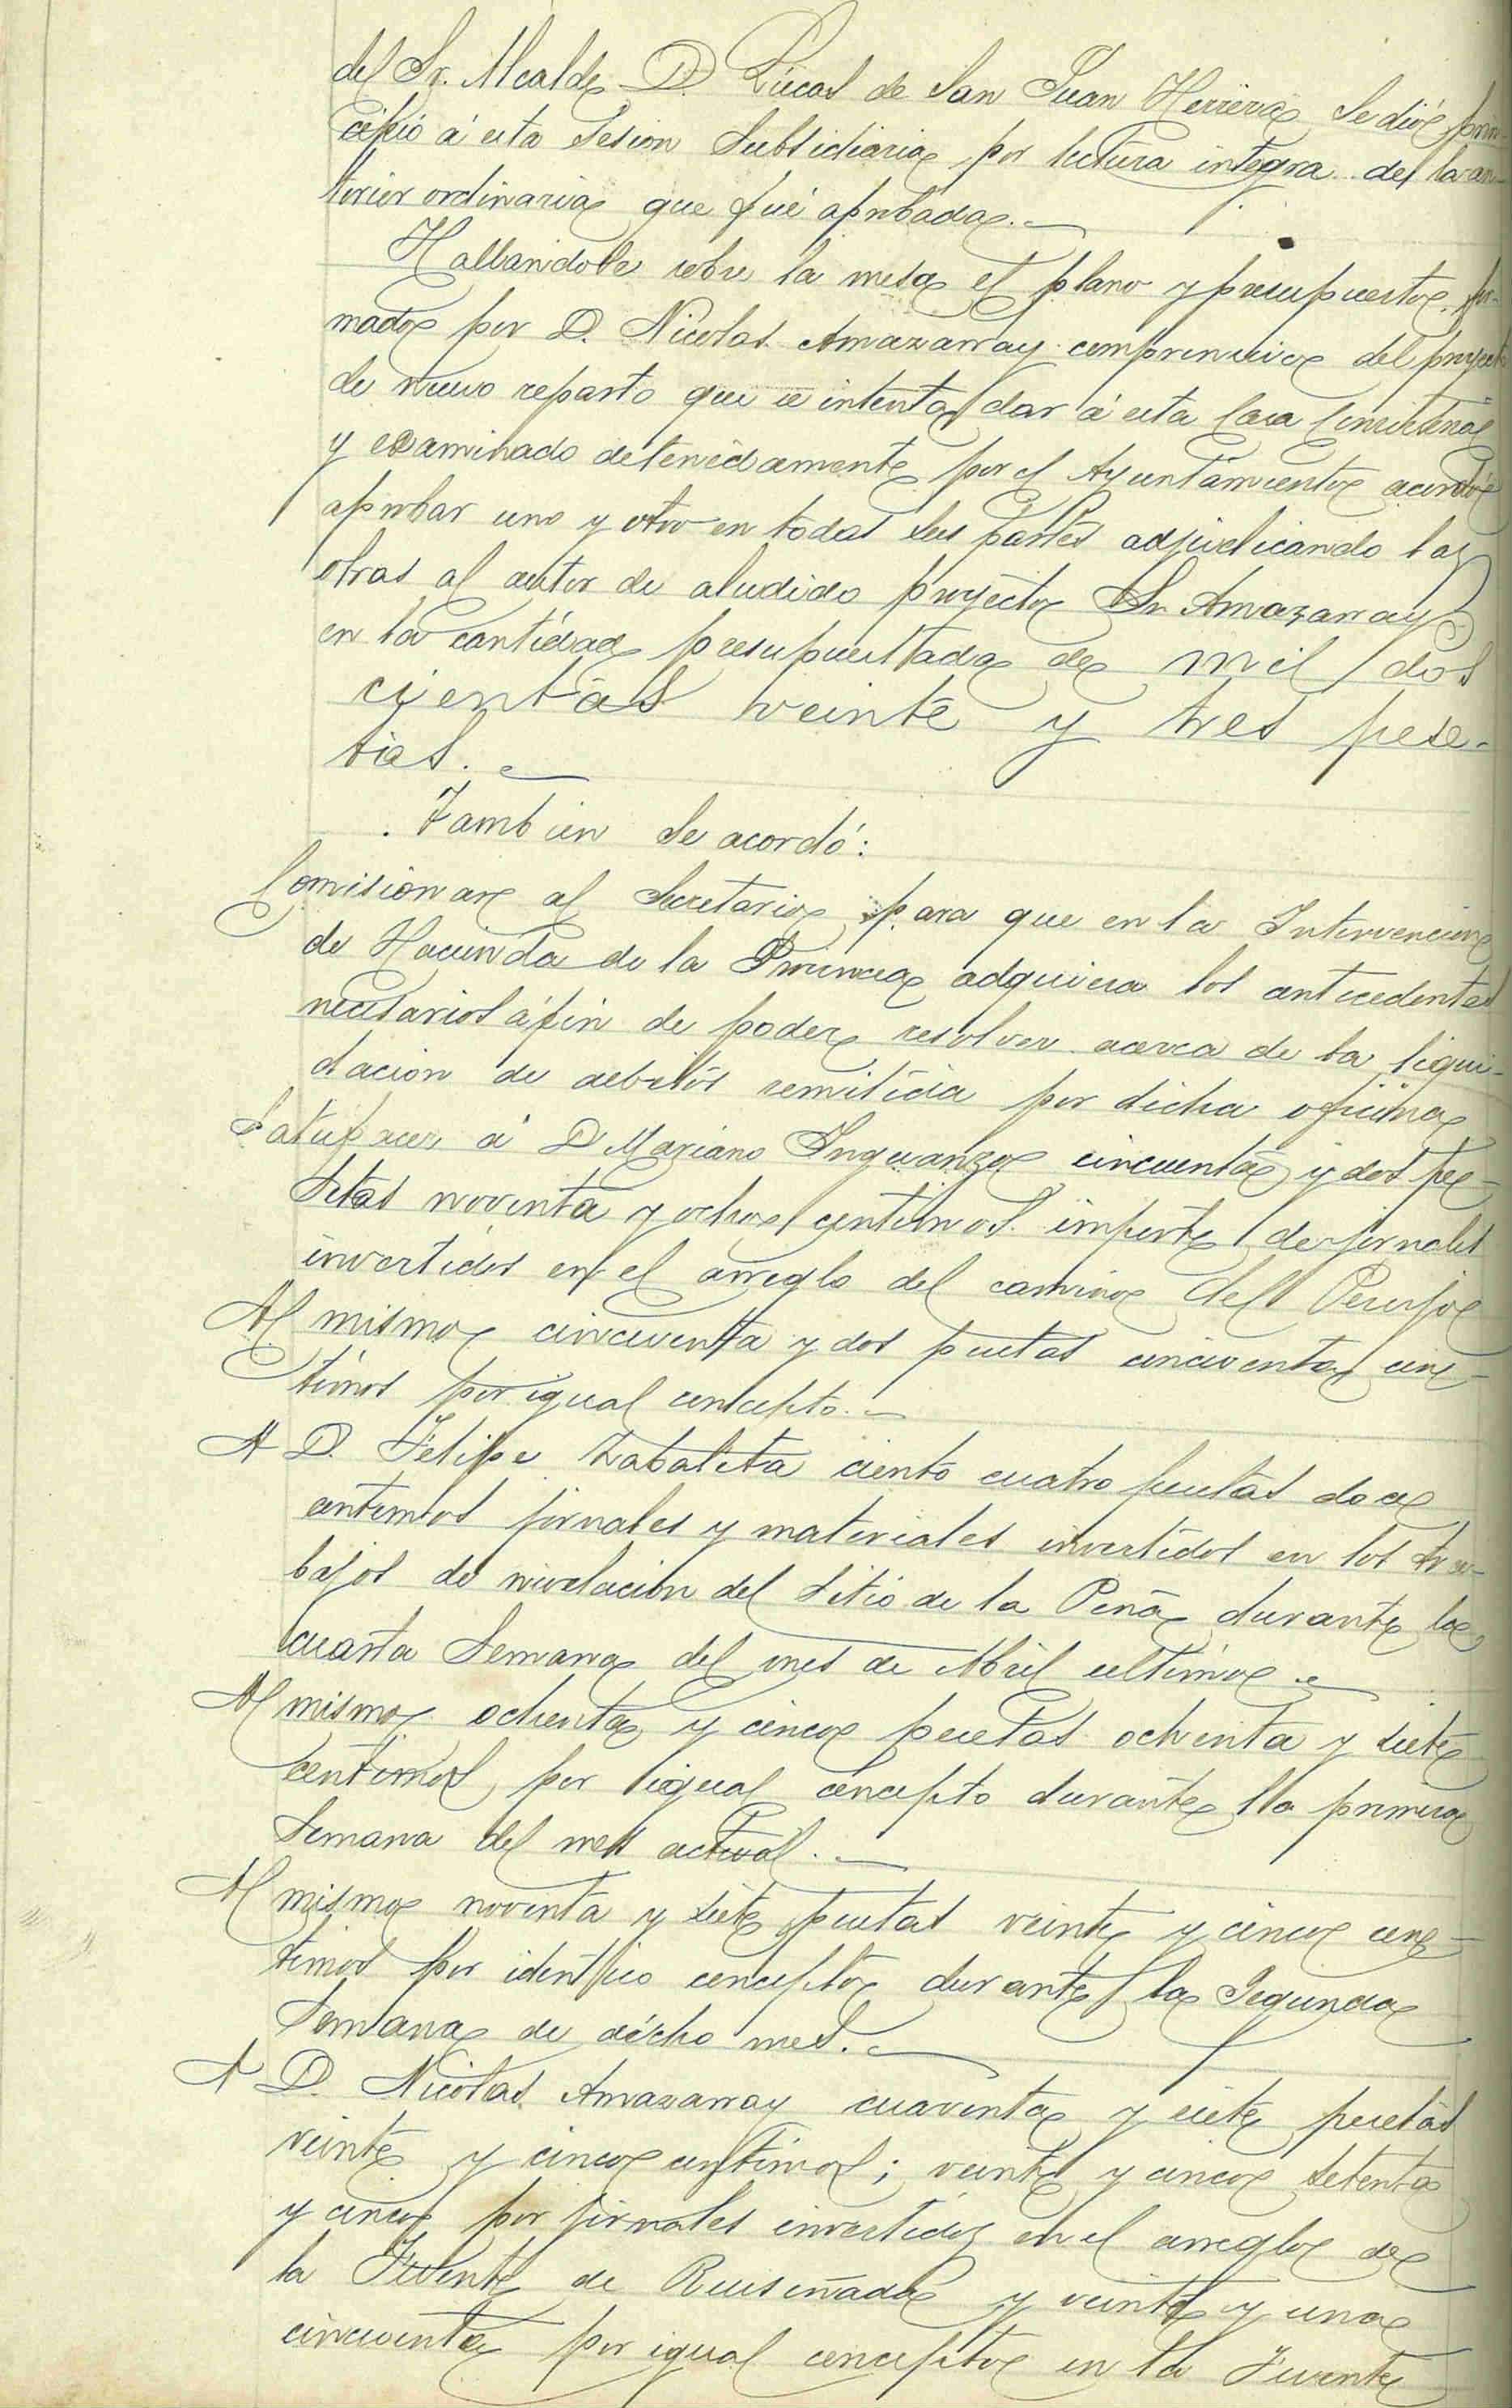 del Sr. Alcalde D. Lúcas de San Juan Herrera se dió prin-
cipio á esta Sesion Subsidiaria por lectura integra del la an-
terior ordinaria que fué aprobada.
Hallandose sobre la mesa el plano y presupuesto for-
mado por D. Nicolas Amazarray comprensivo del proyecto
de nuevo reparto que se intenta dar á esta Casa Consistorial
y examinado detenidamente por el Ayuntamiento acordó
aprobar uno y otro en todas sus partes adjudicando las
obras al autor de aludido proyecto Sr. Amazarray
en la cantidad presupuestada de mil dos
cientas veinte y tres pese-
tas.
Tambien se acordó:
Comisionar al Secretario para que en la Intervencion
de Hacienda de la Provincia adquiera los antecedentes
necesarios á fin de poder resolver acerca de la liqui-
dacion de debitos remitida por dicha oficina
Satisfacer á D Mariano Inguanzo cincuenta y dos pe-
setas noventa y ocho centimos importe de jornales
invertidos en el arreglo del camino del
Al mismo cincuenta y dos pesetas cincuenta cen-
timos por igual concepto.
A D. Felipe Zabaleta ciento cuatro pesetas doce
centimos jornales y materiales invertidos en los tra-
bajos de nivelacion del Sitio de la Peña durante la
cuarta Semana del mes de Abril ultimo.
Al mismo ochenta y cinco pesetas ochenta y siete
centimos por igual concepto durante la primera
Semana del mes actual.
Al mismo noventa y siete pesetas veinte y cinco cen-
timos por identico concepto durante la Segunda
Semana de dicho mes.
A D. Nicolas Amazarray cuarenta y siete pesetas
veinte y cinco centimos; veinte y cinco setenta
y cinco por jornales invertidos en el arreglo de
la Fuente de Ruiseñada y veinte y una
cincuenta por igual concepto en la Fuente